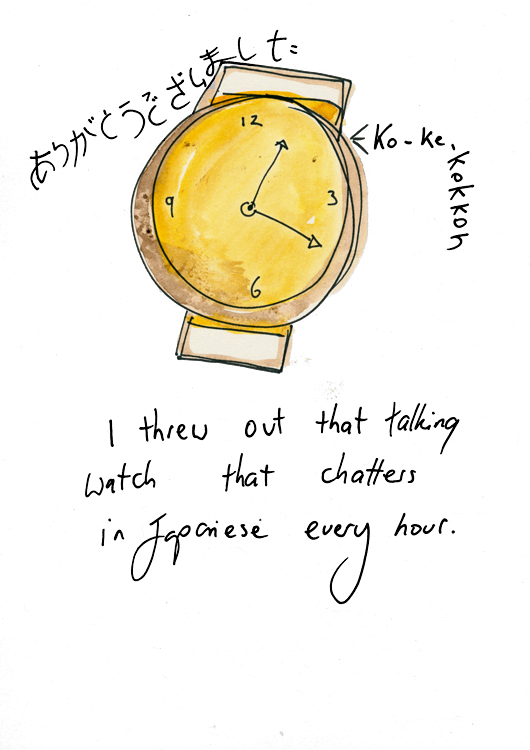 ありがとうございました
Ko-ke-kokkoh
12
3
6
9
I threw out that talking
watch that chatters
in Japanese every hour.